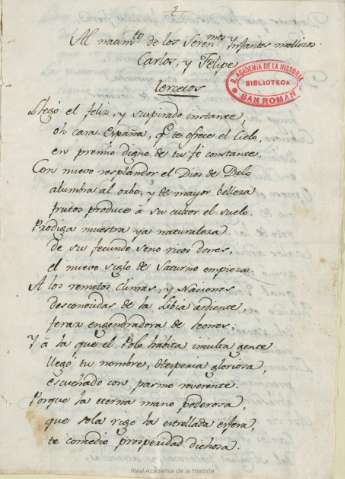 Al nacim.to de los Seren.mos Infantes mellizos
Carlos, y Felipe
Tercetos
R. ACADEMIA DE LA HISTORIA
BIBLIOTECA
SAN ROMAN
Llegó el feliz, y suspirado instante,
oh cara España, q.e te ofrece el Cielo,
en premio digno de tu fé constante.
Con nuevo resplandor el Dios de Delo
alumbra al orbe, y de mayor belleza
frutos produce à su cultor el suelo.
Prodiga muestra ya naturaleza
de su fecundo seno ricos dones,
el nuevo siglo de Saturno empieza.
A los remotos Climas, y Naciones
desconocidas de la Libia ardiente,
feraz engendradora de Leones;
Y à la que el Polo habita inculta gente
llegó tu nombre, Hesperia gloriosa,
escuchado con pasmo reverente.
Porque la eterna mano poderosa,
que sola rige la estrellada esfera,
te concedió prosperidad dichosa.
Real Academia de la Historia